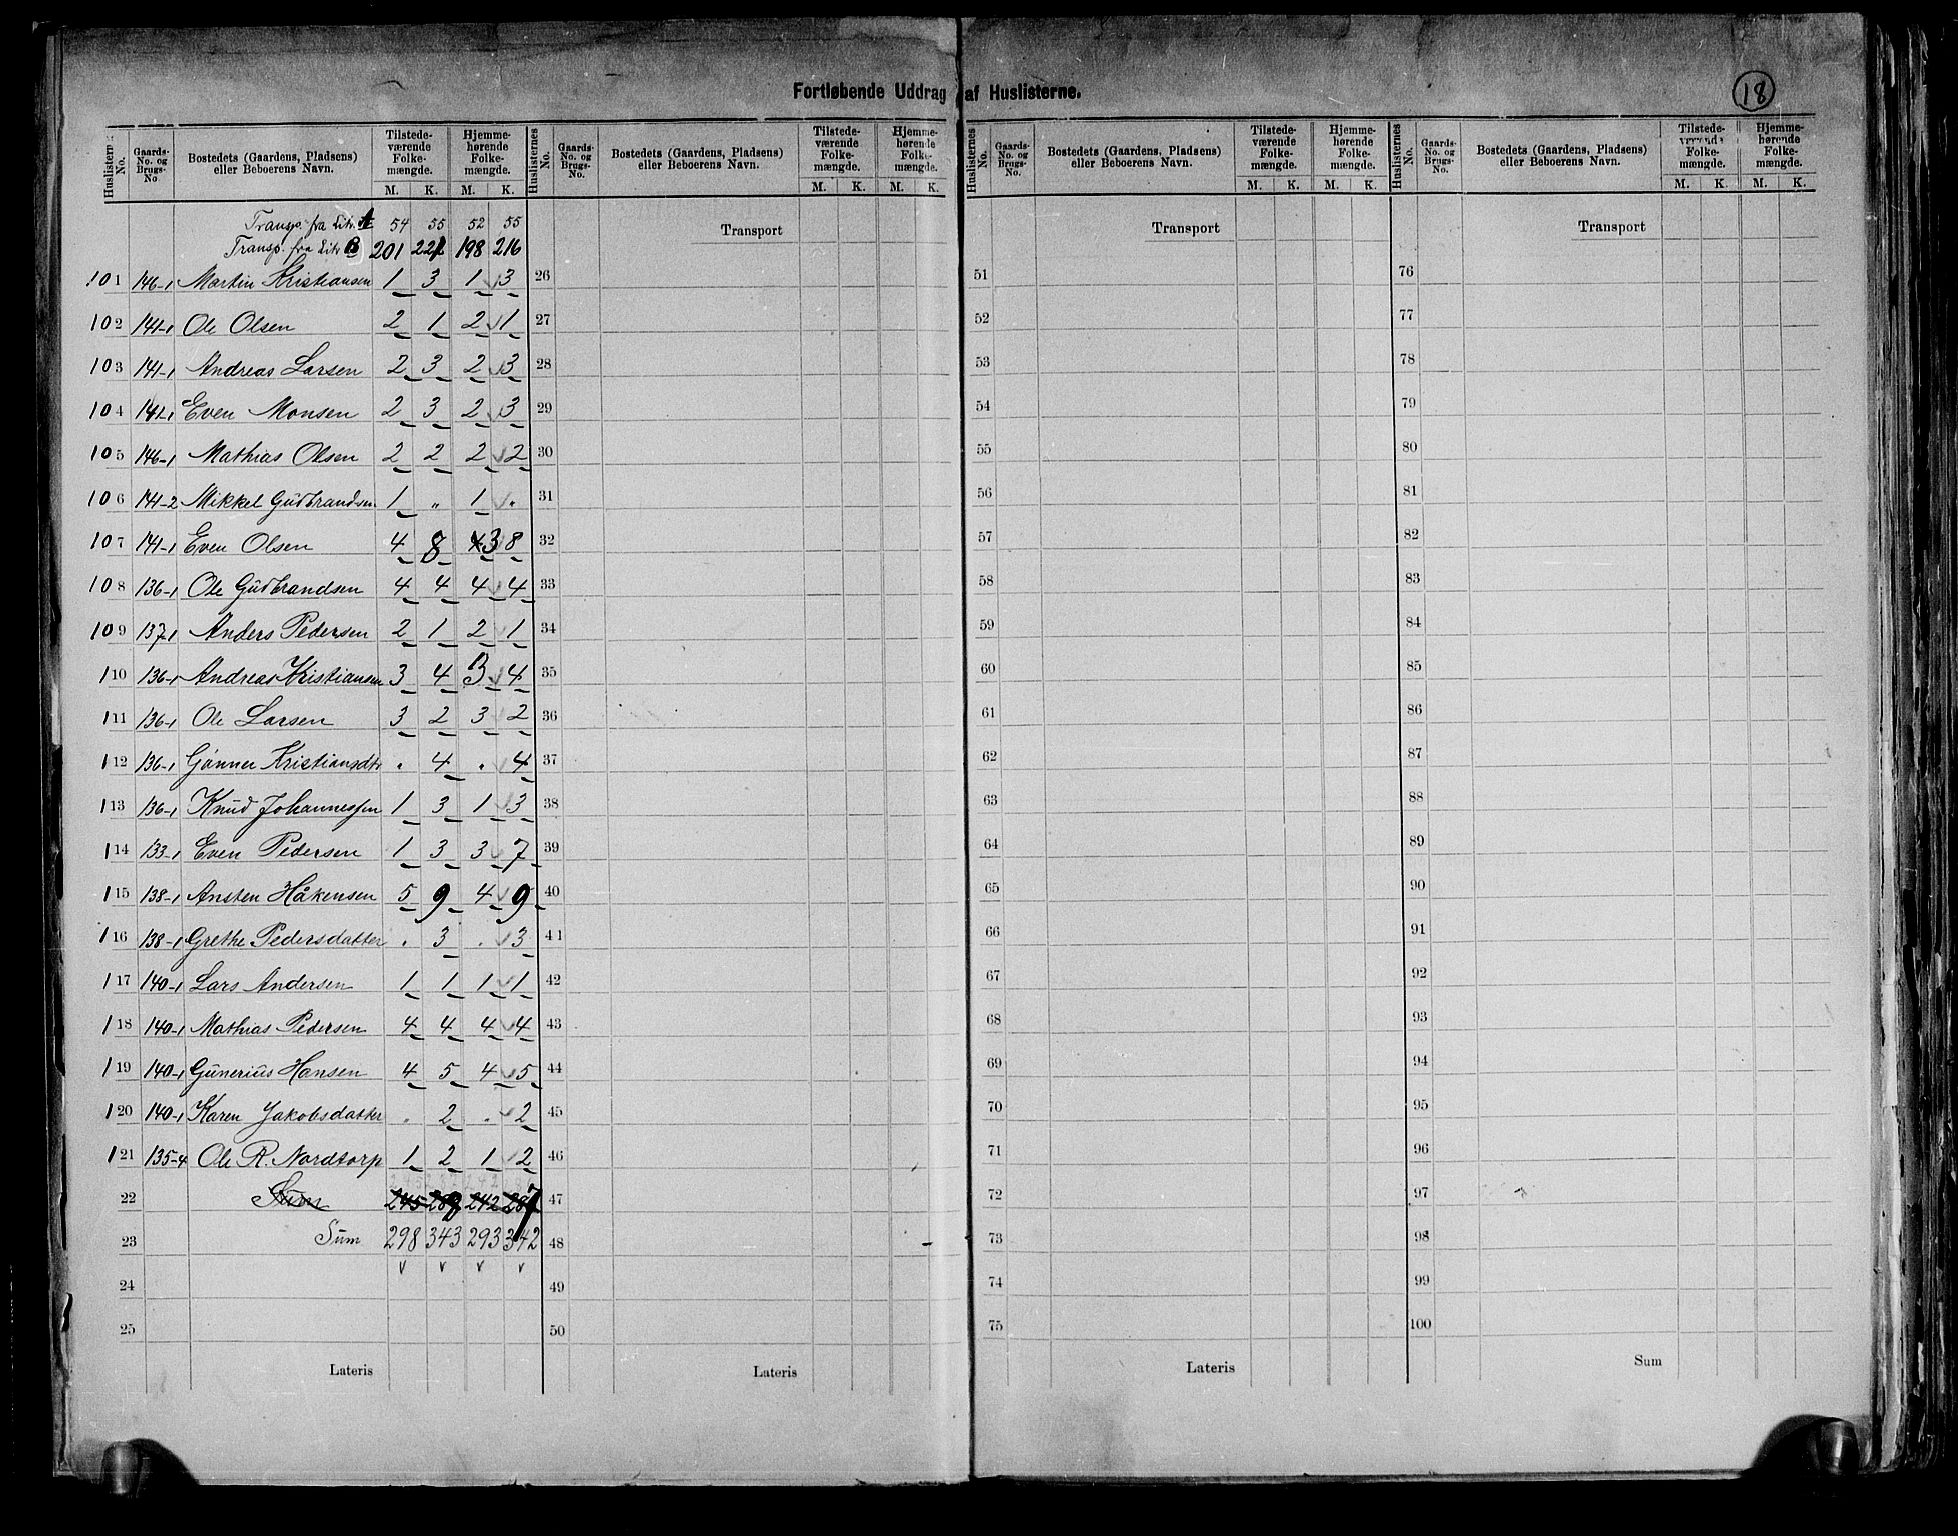 18
Fortløbende Uddrag af Huslisterne.
Huslisternes No. | Gaards-No. og Brugs-No | Bostedets (Gaardens, Pladsens) eller Beboerens Navn. | Tilstedeværende Folkemængde. M. K. | Hjemmehørende Folkemængde. M. K.
Transp. fra Litr. A 54 55 52 55
Transp. fra Litr B 201 221 198 216
101 146-1 Martin Kristiansen 1 3 1 3
102 141-1 Ole Olsen 2 1 2 1
103 141-1 Andreas Larsen 2 3 2 3
104 141-1 Even Monsen 2 3 2 3
105 146-1 Mathias Olsen 2 2 2 2
106 141-2 Mikkel Gudbrandsen 1 " 1 "
107 141-1 Even Olsen 4 8 3 8
108 136-1 Ole Gudbrandsen 4 4 4 4
109 137-1 Anders Pedersen 2 1 2 1
110 136-1 Andreas Kristiansen 3 4 3 4
111 136-1 Ole Larsen 3 2 3 2
112 136-1 Gonner Kristiansdtr . 4 . 4
113 136-1 Knud Johannessen 1 3 1 3
114 133-1 Even Pedersen 1 3 3 7
115 138-1 Ansten Håkensen 5 9 4 9
116 138-1 Grethe Pedersdatter . 3 . 3
117 140-1 Lars Andersen 1 1 1 1
118 140-1 Mathias Pedersen 4 4 4 4
119 140-1 Gunerius Hansen 4 5 4 5
120 140-1 Karen Jakobsdatter . 2 . 2
121 135-4 Ole R. Nordtorp 1 2 1 2
22 Sum 245 242 287
23 Sum 298 343 293 342
24
25
Lateris
Huslisternes No. | Gaards-No. og Brugs-No. | Bostedets (Gaardens, Pladsens) eller Beboerens Navn. | Tilstedeværende Folkemængde. M. K. | Hjemmehørende Folkemængde. M. K.
Transport
26
27
28
29
30
31
32
33
34
35
36
37
38
39
40
41
42
43
44
45
46
47
48
49
50
Lateris
Huslisternes No. | Gaards-No. og Brugs-No. | Bostedets (Gaardens, Pladsens) eller Beboerens Navn. | Tilstedeværende Folkemængde. M. K. | Hjemmehørende Folkemængde. M. K.
Transport
51
52
53
54
55
56
57
58
59
60
61
62
63
64
65
66
67
68
69
70
71
72
73
74
75
Lateris
Huslisternes No. | Gaards-No. og Brugs-No. | Bostedets (Gaardens, Pladsens) eller Beboerens Navn. | Tilstedeværende Folkemængde. M. K. | Hjemmehørende Folkemængde. M. K.
Transport
76
77
78
79
80
81
82
83
84
85
86
87
88
89
90
91
92
93
94
95
96
97
98
99
100
Sum